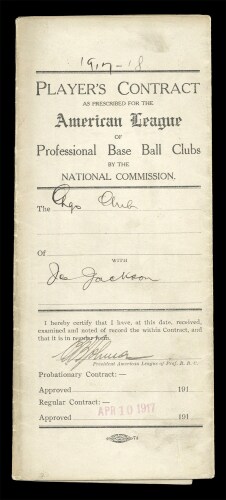 1917-18
PLAYER'S CONTRACT
AS PRESCRIBED FOR THE
American League
OF
Professional Base Ball Clubs
BY THE
NATIONAL COMMISSION.
The Chgo Club
Of
WITH
Joe Jackson
I hereby certify that I have, at this date, received,
examined and noted of record the within Contract, and
that it is in regular form.
President American League of Prof. B. B. C.
Probationary Contract:—
Approved 191
Regular Contract:—
Approved 191
APR 10 1917